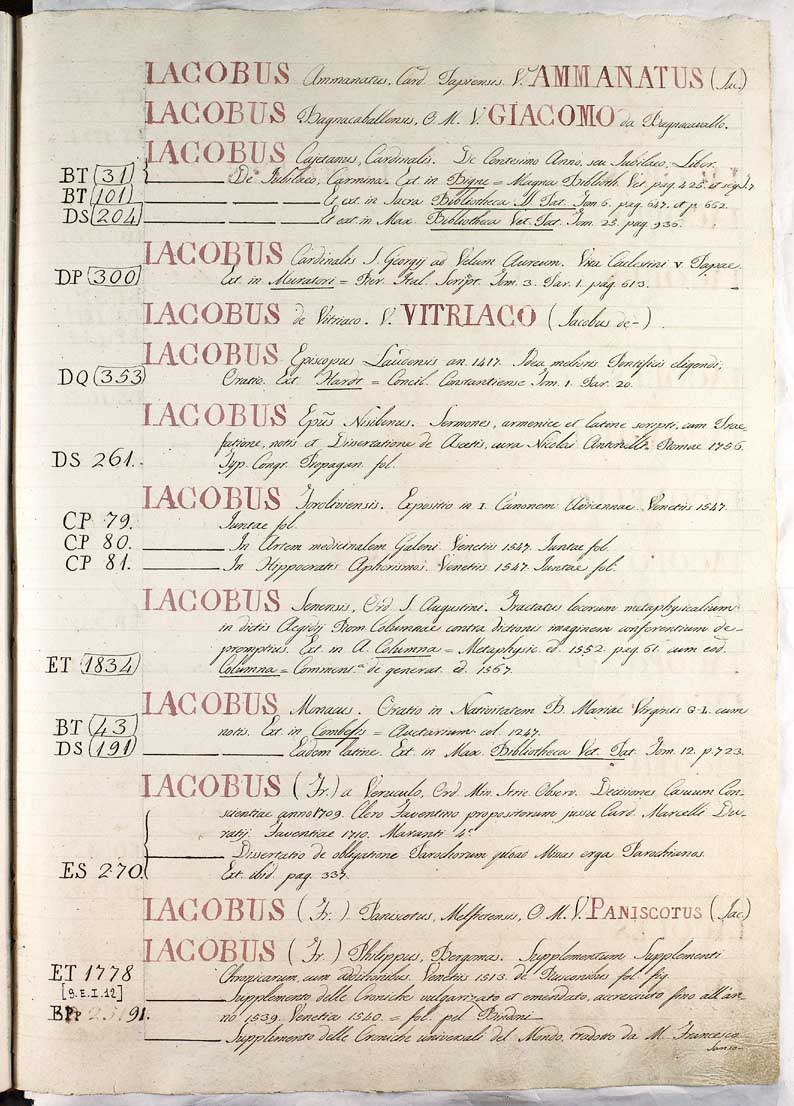 IACOBUS Ammanatus, Card. Papiensis. V. AMMANATUS (Jac.)
IACOBUS Bagnacaballensis, O. M. V. GIACOMO da Bagnacavallo.
IACOBUS Cajetanus, Cardinalis. De Centesimo Anno, seu Jubilaeo, Liber.
BT (31) De Jubilaeo, Carmina. Ext. in Bigne = Magna Biblioth. Vet. pag. 425. et
BT 101 Et ext. in Sacra Bibliotheca SS. Pat. Tom. 6. pag. 647. et p. 662.
DS 204 Et ext. in Max. Bibliotheca Vet. Pat. Tom. 25. pag. 936.
IACOBUS Cardinalis S. Georgij ad Velum Aureum. Vita Caelestini V. Papae.
DP (300) Ext. in Muratori = Rer. Ital. Script. Tom. 3. Par. 1. pag. 613.
IACOBUS de Vitriaco. V. VITRIACO (Jacobus de-)
IACOBUS Episcopus Laudensis an. 1417. Idea melioris Pontificis eligendi;
DQ (353) Oratio. Ext. Hardt = Concil. Constantiense Tom. 1. Par. 20.
IACOBUS Epũs Nisibenus. Sermones, armenice et latine scripti, cum Prae-
fatione, notis et Dissertatione de Ascetis, cura Nicolai Antonelli. Romae 1756.
DS 261. Typ. Congr. Propagan. fol.
IACOBUS Foroliviensis. Expositio in I. Canonem Avicennae. Venetiis 1547.
CP 79. Juntae fol.
CP 80. In Artem medicinalem Galeni. Venetiis 1547. Juntae fol.
CP 81. In Hippocratis Aphorismos. Venetiis 1547. Juntae fol.
IACOBUS Senensis, Ord. S. Augustini. Tractatus locorum metaphysicalium
in dictis Aegidij Rom. Columnae contra dictionis imaginem conferentium de-
promptius. Ext. in A. Columna = Metaphysic. ed. 1552. pag. 61. cum eod.
ET (1834) Columna = Comment.ᵃ de generat. ed. 1567.
IACOBUS Monacus. Oratio in Nativitatem B. Mariae Virginis G-L. cum
BT (43) notis. Ext. in Combefis = Auctarium col. 1247.
DS (191) Eadem latine. Ext. in Max. Bibliotheca Vet. Pat. Tom. 12. p. 723.
IACOBUS (Fr.) a Veruculo, Ord. Min. Stric. Observ. Decisiones Casuum Con-
scientiae anno 1709. Clero Faventino propositorum jussu Card. Marcelli Du-
ratij. Faventiae 1710. Maranti 4.º
Dissertatio de obligatione Parochorum quoad Missas erga Parochianos.
ES 270. Ext. ibid. pag. 337.
IACOBUS (Fr.) Paniscotus, Melfetensis, O. M. V. PANISCOTUS (Jac.)
IACOBUS (Fr.) Philippus, Bergomas. Supplementum Supplementi
ET 1778 Chronicarum, cum additionibus. Venetiis 1513. de Rusconibus fol. fig.
[9. E. I. 12] Supplemento delle Croniche vulgarizato et emendato, accresciuto fino all'an-
91. no 1539. Venetia 1540. = fol. pel Bindoni
Supplemento delle Croniche universali del Mondo, tradotto da M. Francesco
Sanso-